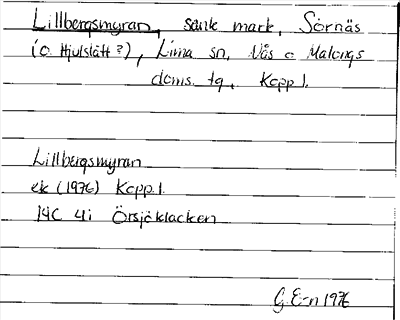 Lillbergsmyran, sank mark, Sörnäs
(o. Hjulslätt?), Lima sn, Nås o Malungs
doms. tg, Kopp l.
Lillbergsmyran
ek (1976) Kopp l.
14C 4i Örsjöklacken
G. E-n 1976